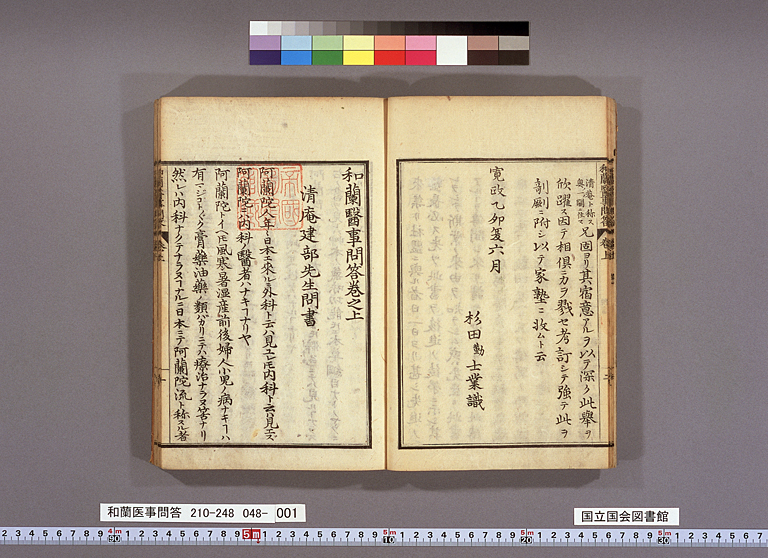 清庵ト称ス
奥ノ一関ニ住ス 兄固ヨリ其宿意アルヲ以テ深ク此舉ヲ
欣躍ス因テ相倶ニカヲ戮セ考訂シテ強テ此ヲ
剞劂ニ附シ以テ家塾ニ收ムト云
寛政乙卯夏六月
杉田勤士業識
和蘭醫事問答卷之上
清庵建部先生問書
阿蘭陀人年々日本ニ來ルニ外科ト云ハ見ユレ𪜈内科ト云ハ見エズ
阿蘭陀ニ内科ノ醫者ハナキコナリヤ
阿蘭陀トイヘ𪜈風寒暑湿産前後婦人小兒ノ病ナキコハ
有マジコトゴトク膏藥油藥ノ類バカリニテハ療治ナラヌ筈ナリ
然レハ内科ナクテナラヌコナルニ日本ニテ阿蘭陀流ト称スル者
和蘭医事問答 210-248 048- 001
国立国会図書館